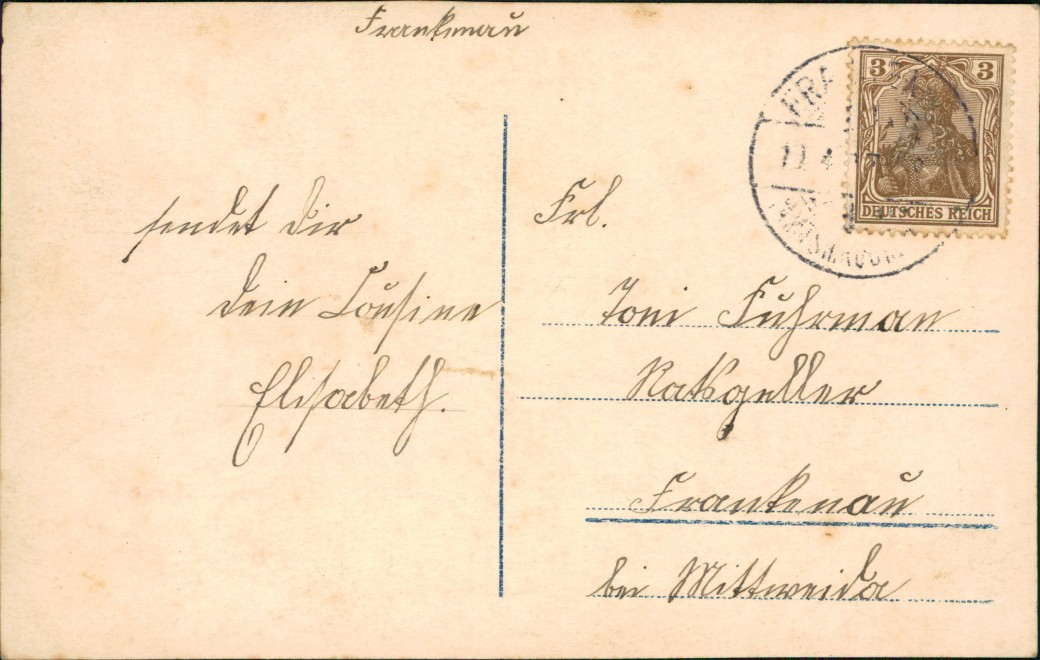 Frankenau
3 3
DEUTSCHES REICH
FRA
sendet dir
dein Cousine
Elisabeth.
Frl.
Toni Fuhrman
Ratsgeller
Frankenau
bei Mittweida